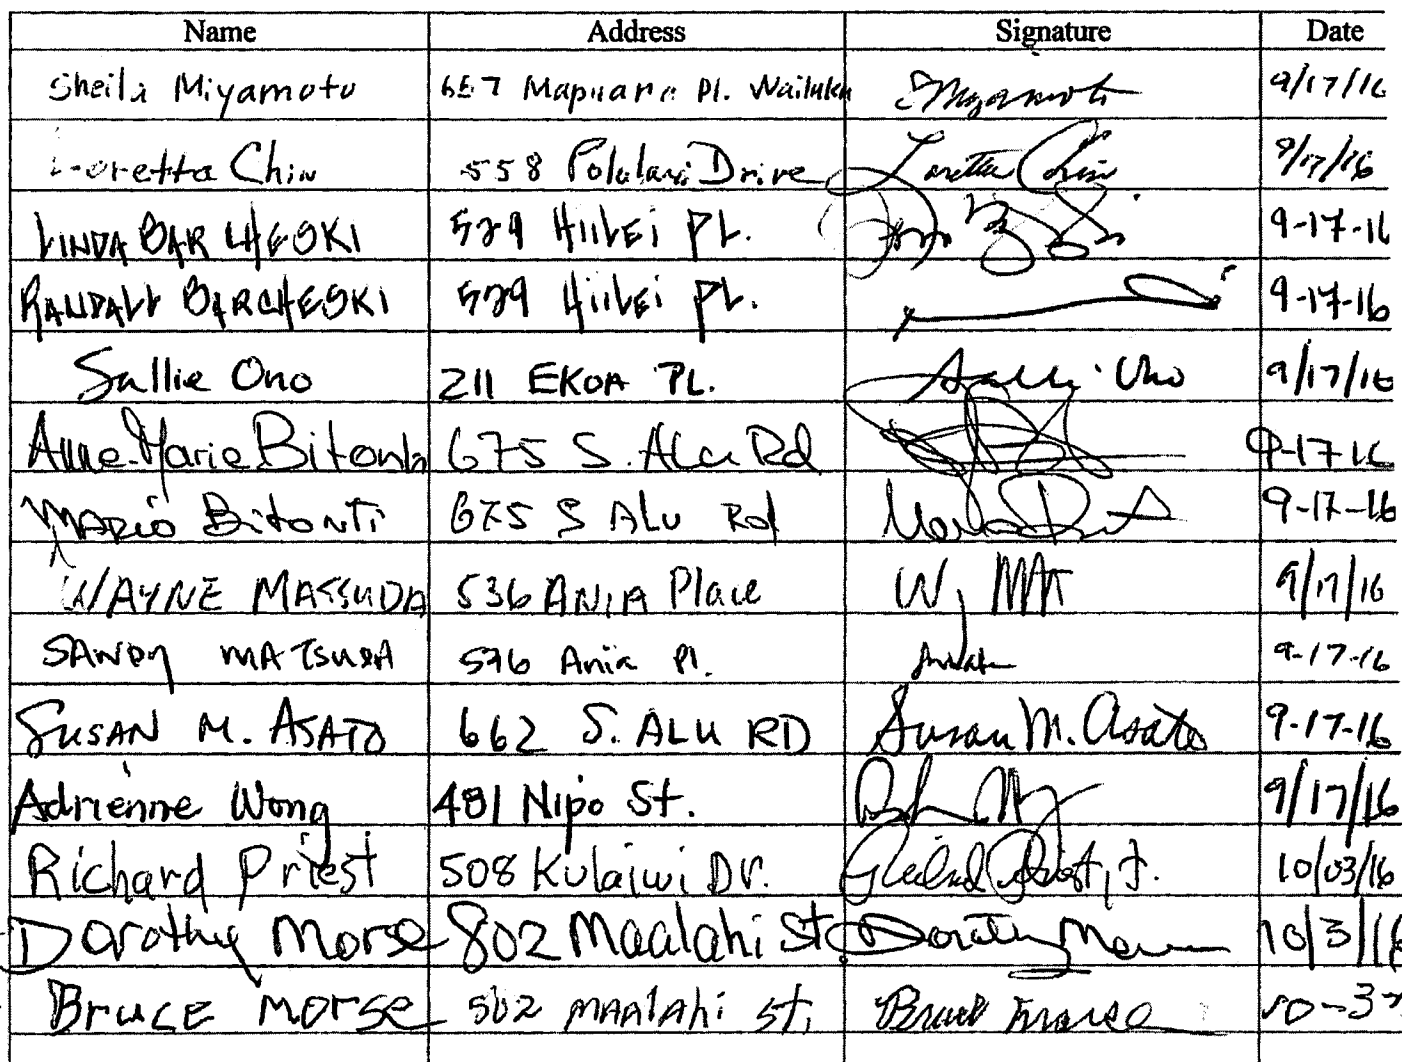 Name Address Signature Date
Sheila Miyamoto 667 Mapuana Pl. Wailuku SMiyamoto 9/17/16
Loretta Chin 558 Pololani Drive Loretta Chin 9/17/16
LINDA BARCHESKI 529 HiiLei PL. 9-17-16
RANDALL BARCHESKI 529 HiiLei PL. 9-17-16
Sallie Ono 211 EKOA PL. Sallie Ono 9/17/16
Anne-Marie Bitonti 675 S. Alu Rd 9-17-16
MARIO BitoNTi 675 S ALU Rd 9-17-16
WAYNE MATSUDA 536 ANIA Place 9/17/16
SANDY MATSUDA 536 Ania Pl. 9-17-16
SUSAN M. ASATO 662 S. ALU RD Susan M. Asato 9-17-16
Adrienne Wong 481 Nipo St. 9/17/16
Richard Priest 508 Kulaiwi Dr. Richard Priest, Jr. 10/03/16
Dorothy Morse 802 Maalahi St. Dorothy Morse 10/3/16
Bruce Morse 502 MAAlAhi St. Bruce Morse 10-3-